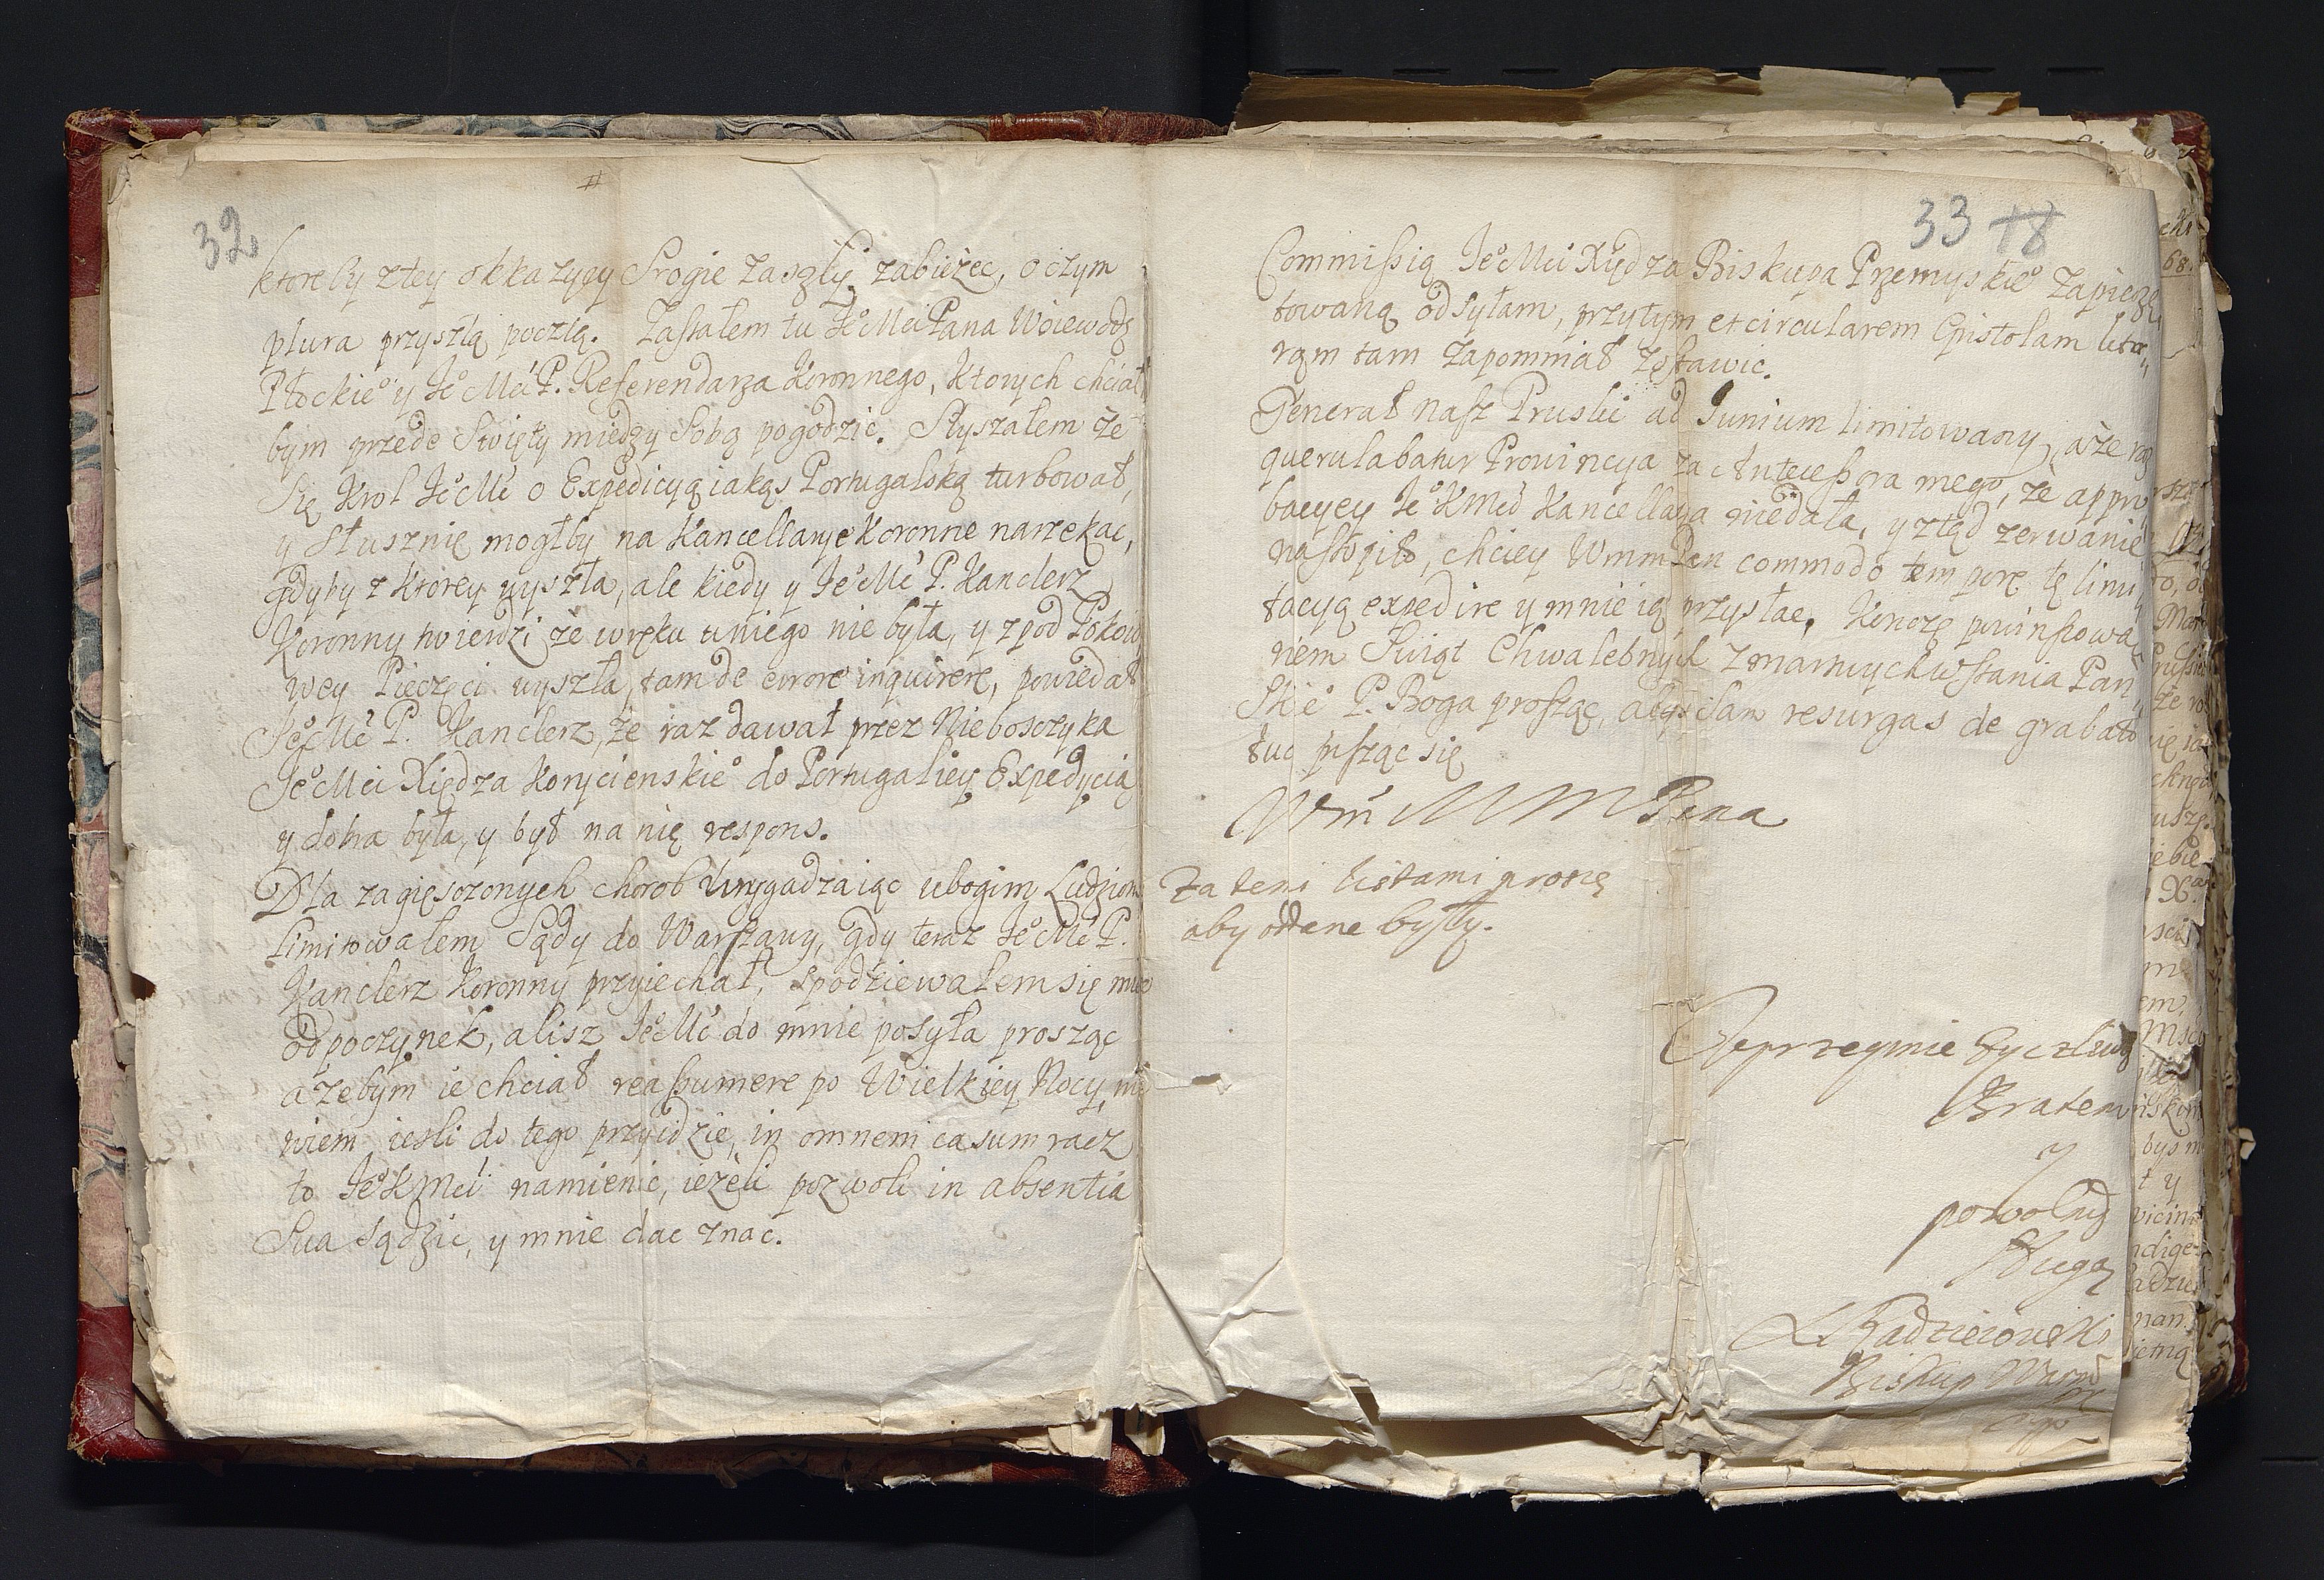 32
ktoreby z tey okkazyey Srogie zaszły zabieżec, o czym
plura przyszłą pocztą. Zastałem tu Je° Mci Pana Woiewodę
Płockie° y Je° Mci P. Referendarza Koronnego, ktorych chciał
bym przede Swięty miedzy Sobą pogodzic. Słyszałem że
Się Krol Je° Mć o Expedicyą iakąs Portugalską turbował,
y Słusznię mogłby na Kancellarye Koronne narzekac,
gdyby z ktorey wyszła, ale kiedy y Je° Mć P. Kanclerz
Koronny twierdzi że w ręku u niego nie była, y z pod Pokoio
wey Pieczęci wyszła, tam de errore inquirere, powiedał
Je° Mć P. Kanclerz, że raz dawał przez Nieboszczyka
Je° Mci Xiędza Korycienskie° do Portugaliey Expedycią
y dobra była, y był na nię respons.
Dla zagięszczonych chorob Wygadzaiąc ubogim Ludziom
limitowałem Sądy do Warszawy, gdy teraz Je° Mć P.
Kanclerz Koronny przyiechał, spodziewałem się miec
odpoczynek, alisz Je° Mć do mnie posyła prosząc
ażebym ie chciał reassumere po Wielkiey Nocy, nie
wiem iesli do tego przyidzie, in omnem casum racz
to Je° K Mci namienic, ieżeli pozwoli in absentia
Sua sądzic, y mnie dac znac.
33 18
Commissią Je° Mci Xiędza Biskupa Przemyskie° zapieczę
towaną odsyłam, przytym et circularem Epistolam
rąm tam zapomniał zostawic.
Generał nasz Pruski ad Junium limitowany, a że
querulabatur Prouincya za Antecessora mego, że appro
bacyey Je° K Mci Kancellarya niedała, y ztąd zerwanie
nastąpiło, chciey Wmm Pan commodo tempore tę limi
tacyą expedire y mnie ią przysłac. Konczę powinszowa
niem Swiąt Chwalebnych zmartwychwstania Pan
skie° P. Boga prosząc, abys Sam resurgas de grabato
tuo pisząc się
Wm M M Pana
Za temi listami proszę
aby oddane były.
Uprzeymie życzliwy
Bratem
y
powolny
Sługą
Radzieiowski
Biskup Warm